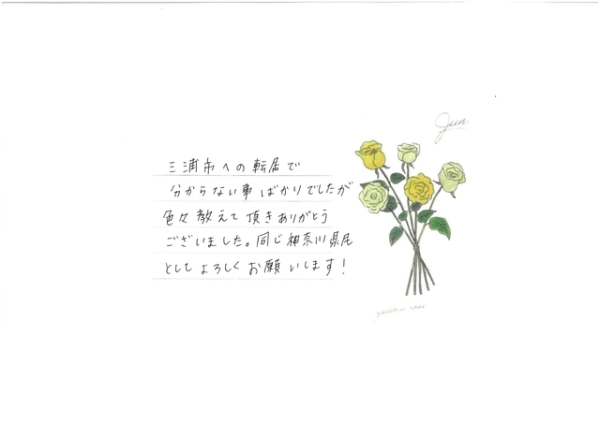 Jun.
三浦市への転居で
分からない事ばかりでしたが
色々教えて頂きありがとう
ございました。同じ神奈川県民
としてよろしくお願いします！